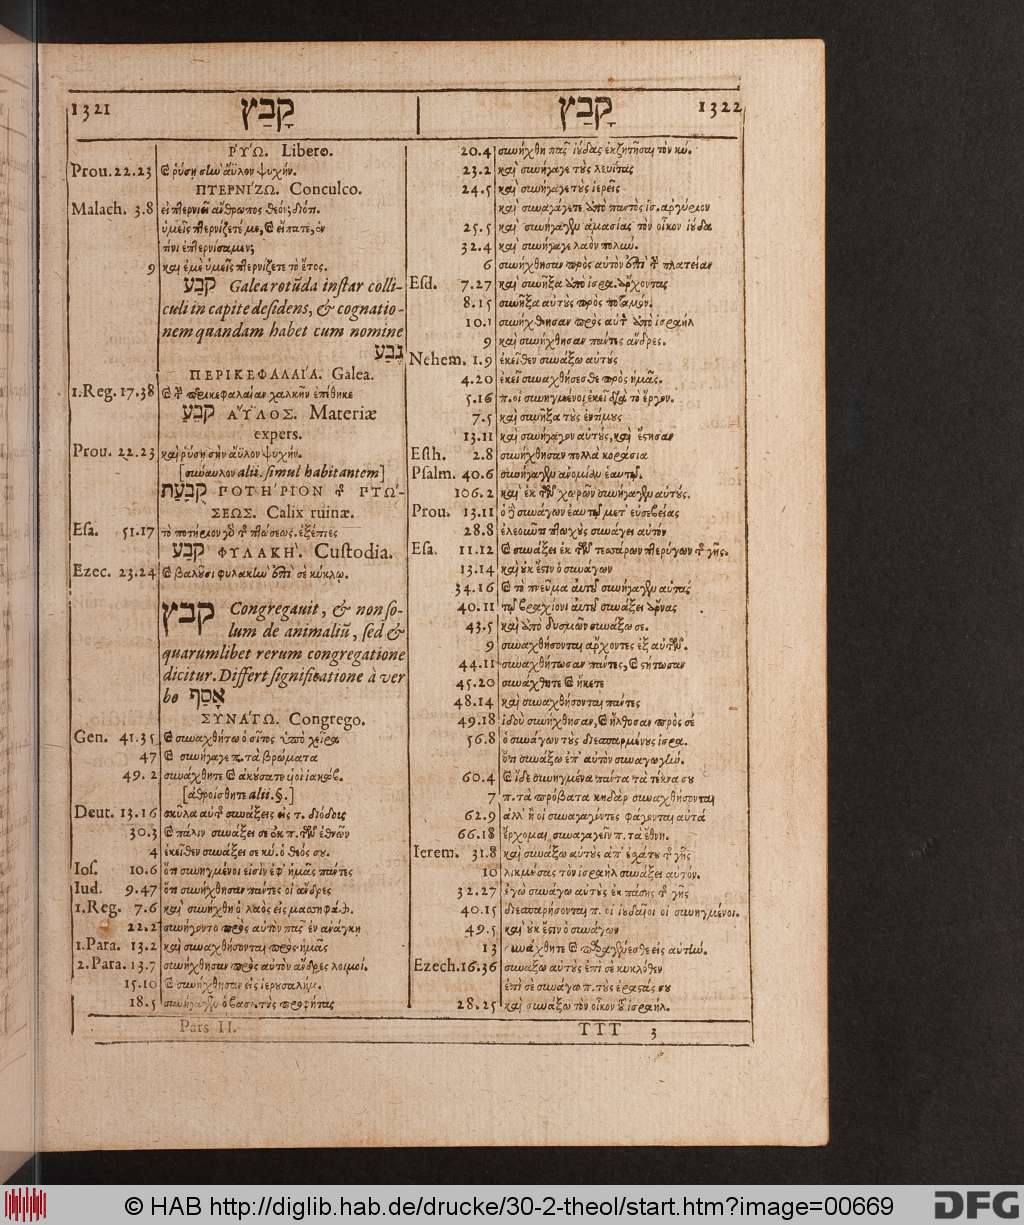 1321 קָבַץ
קָבַץ 1322
ΡΥΩ. Libero.
Prou. 22.23 ϗ ῥύσῃ σὴν ἄϋλον ψυχήν.
ΠΤΕΡΝΙΖΩ. Conculco.
Malach. 3.8 εἰ πτερνιεῖ ἄνθρωπος θεόν; διότι
ὑμεῖς πτερνίζετέ με, ϗ εἴπατε, ἐν
τίνι ἐπτερνίσαμεν;
9 καὶ ἐμὲ ὑμεῖς πτερνίζετε τὸ ἔτος.
קבע Galea rotũda instar colli-
culi in capite desidens, & cognatio-
nem quandam habet cum nomine
גָבַע
ΠΕΡΙΚΕΦΑΛΑΙΑ. Galea.
1.Reg. 17.38 ϗ τ περικεφαλαίαν χαλκῆν ἐπέθηκε
קבע ΑΫΛΟΣ. Materiæ
expers.
Prou. 22.23 καὶ ῥύσῃ σὴν ἄϋλον ψυχήν.
[σύναυλον alii. simul habitantem]
קֻבַּעַת ΠΟΤΗΡΙΟΝ τ ΠΤΩ-
ΣΕΩΣ. Calix ruinæ.
Esa. 51.17 τὸ ποτήριον γὰρ τ πτώσεως. ἐξέπιες
קבע ΦΥΛΑΚΗ. Custodia.
Ezec. 23.24 ϗ βαλοῦσι φυλακὴν ἐπὶ σὲ κύκλῳ.
קבץ Congregauit, & non so-
lum de animaliũ, sed &
quarumlibet rerum congregatione
dicitur. Differt significatione à ver
bo אָסַף
ΣΥΝΑΓΩ. Congrego.
Gen. 41.35 ϗ συναχθήτω ὁ σῖτος ὑπὸ χεῖρα
47 ϗ συνήγαγε π. τὰ βρώματα
49. 2 συνάχθητε ϗ ἀκούσατε υἱοὶ ἰακώβ.
[ἀθροίσθητε alii. §.]
Deut. 13.16 σκῦλα αὐτ συνάξεις εἰς τ. διόδους
30.3 ϗ πάλιν συνάξει σε ἐκ π. τῶν ἐθνῶν
4 ἐκεῖθεν συνάξει σε κύ. ὁ θεός σου.
Ios. 10.6 ὅτι συνηγμένοι εἰσὶν ἐφ' ἡμᾶς πάντες
Iud. 9.47 ὅτι συνήχθησαν πάντες οἱ ἄνδρες
1.Reg. 7.6 καὶ συνήχθη ὁ λαὸς εἰς μασσηφάθ.
22.2 συνήγοντο πρὸς αὐτὸν πᾶς ἐν ἀνάγκῃ
1.Para. 13.2 καὶ συναχθήσονται πρὸς ἡμᾶς
2.Para. 13.7 συνήχθησαν πρὸς αὐτὸν ἄνδρες λοιμοί.
15.10 ϗ συνήχθησαν εἰς ἱερουσαλήμ.
18.5 συνήγαγεν ὁ βασιλ. τοὺς προφήτας
20.4 συνήχθη πᾶς ἰούδας ἐκζητῆσαι τὸν κύ.
23.2 καὶ συνήγαγε τοὺς λευίτας
24.5 καὶ συνήγαγε τοὺς ἱερεῖς
καὶ συναγάγετε ἀπὸ παντὸς ἰσ. ἀργύριον
25.5 καὶ συνήγαγεν ἀμασίας τὸν οἶκον ἰούδα
32.4 καὶ συνήγαγε λαὸν πολύν.
6 συνήχθησαν πρὸς αὐτὸν ἐπὶ τ πλατεῖαν
Esd. 7.27 καὶ συνῆξα ἀπὸ ἰσρα. ἄρχοντας
8.15 συνῆξα αὐτοὺς πρὸς ποταμόν.
10.1 συνήχθησαν πρὸς αὐτ ἀπὸ ἰσραήλ
9 καὶ συνήχθησαν πάντες ἄνδρες.
Nehem. 1.9 ἐκεῖθεν συνάξω αὐτούς
4.20 ἐκεῖ συναχθήσεσθε πρὸς ἡμᾶς.
5.16 π. οἱ συνηγμένοι ἐκεῖ διὰ τὸ ἔργον.
7.5 καὶ συνῆξα τοὺς ἐντίμους
13.11 καὶ συνήγαγον αὐτούς, καὶ ἔστησαν
Esth. 2.8 συνήχθησαν πολλὰ κοράσια
Psalm. 40.6 συνήγαγεν ἀνομίαν ἑαυτῷ.
106.2 καὶ ἐκ τῶν χωρῶν συνήγαγεν αὐτούς.
Prou. 13.11 ὁ δὲ συνάγων ἑαυτῷ μετ' εὐσεβείας
28.8 ἐλεοῦντι πτωχοὺς συνάγει αὐτόν
Esa. 11.12 ϗ συνάξει ἐκ τῶν τεσσάρων πτερύγων τ γῆς.
13.14 καὶ οὐκ ἔστιν ὁ συνάγων
34.16 ϗ τὸ πνεῦμα αὐτοῦ συνήγαγεν αὐτάς
40.11 τῷ βραχίονι αὐτοῦ συνάξει ἄρνας
43.5 καὶ ἀπὸ δυσμῶν συνάξω σε.
9 συναχθήσονται ἄρχοντες ἐξ αὐτῶν.
44.11 συναχθήτωσαν πάντες, ϗ στήτωσαν
45.20 συνάχθητε ϗ ἥκετε
48.14 καὶ συναχθήσονται πάντες
49.18 ἰδοὺ συνήχθησαν, ϗ ἤλθοσαν πρὸς σέ
56.8 ὁ συνάγων τοὺς διεσπαρμένους ἰσρα.
ὅτι συνάξω ἐπ' αὐτὸν συναγωγήν.
60.4 ϗ ἴδε συνηγμένα πάντα τὰ τέκνα σου
7 π. τὰ πρόβατα κηδὰρ συναχθήσονται
62.9 ἀλλ' ἢ οἱ συναγαγόντες φάγονται αὐτά
66.18 ἔρχομαι συναγαγεῖν π. τὰ ἔθνη.
Ierem. 31.8 καὶ συνάξω αὐτοὺς ἀπ' ἐσχάτου τ γῆς
10 λικμήσας τὸν ἰσραὴλ συνάξει αὐτόν.
32.27 ἐγὼ συνάγω αὐτοὺς ἐκ πάσης τ γῆς
40.15 διεσπαρήσονται π. οἱ ἰουδαῖοι οἱ συνηγμένοι.
49.5 καὶ οὐκ ἔστιν ὁ συνάγων
13 συνάχθητε ϗ παραγένεσθε εἰς αὐτήν.
Ezech. 16.36 συνάξω αὐτοὺς ἐπὶ σὲ κυκλόθεν
ἐπὶ σὲ συνάγω π. τοὺς ἐραστάς σου
28.25 καὶ συνάξω τὸν οἶκον τοῦ ἰσραήλ.
Pars II.
TTT 3
© HAB http://diglib.hab.de/drucke/30-2-theol/start.htm?image=00669
DFG